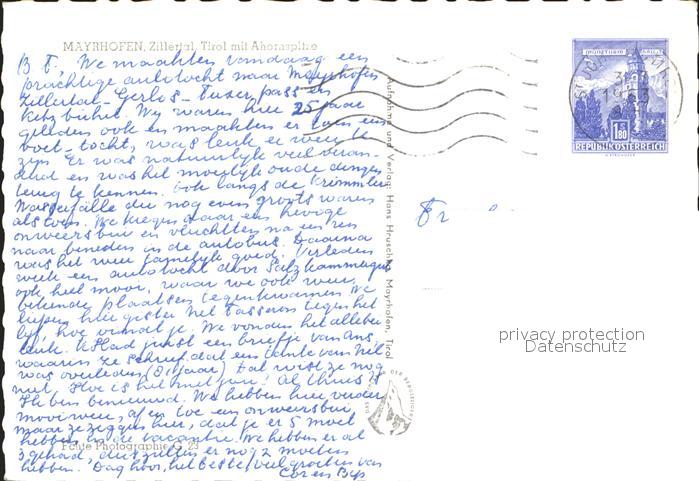 MAYRHOFEN, Zillertal, Tirol mit Ahornspitze
B F, We maakten vandaag een
prachtige autotocht naar Mayrhofen
Zillertal - Gerlos - Turer pass en
Kitzbühel. Wij waren hier 25 jaar
geleden ook en maakten er toen een
voet-tocht, was leuk er weer te
zijn. Er was natuurlijk veel veran-
derd en was het moeilijk oude dingen
terug te kennen. Ook langs de Krimmler
Wasserfälle die nog even groots waren
als toen. We kregen daar een hevige
onweersbui en vluchtten na een
naar beneden in de autobus. Daarna
was het weer tamelijk goed. Verleden
week een autotocht door Salzkammergut
ook heel mooi, waar we ook weer
bekende plaatsen tegenkwamen. We
liepen hier gister tegen het
lijf, hoe vindt je. We vonden het allebei
leuk. Had juist een briefje van Ans,
waarin ze schreef dat een tante van
was overleden jaar) dat wist ze nog
niet. Hoe is het met jou? Al thuis?
Ik ben benieuwd. We hebben hier verder
mooi weer, af en toe een onweersbui
maar ze zeggen hier, dat je er 5 moet
hebben in de vacantie. We hebben er al
3 gehad, dus zullen er nog 2 moeten
hebben. Dag hoor, het beste, veel groeten van
Cor en Bep
Echte Photographie G 23
Aufnahme und Verlag: Hans Hruschka, Mayrhofen, Tirol
MÜNZTURM HALL i. T.
1.80
REPUBLIK ÖSTERREICH
Fr
privacy protection
Datenschutz